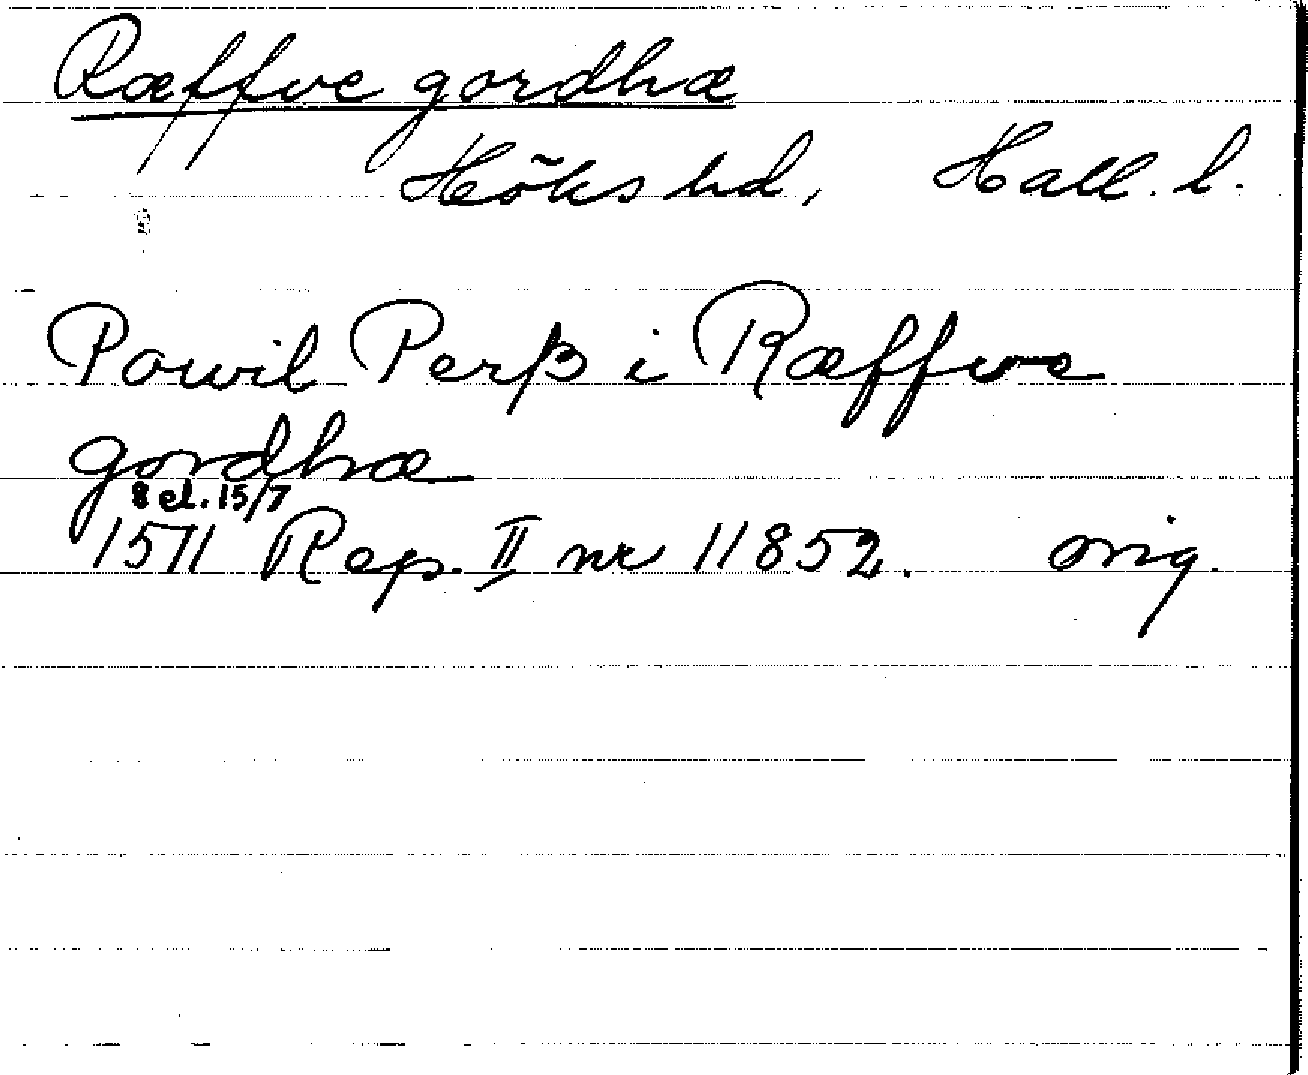 Ræffwe gordhæ
Höks hd, Hall. l.
Powil Perß i Ræffwe
gordhæ
8 el. 15/7
1511 Rep. II nr 11852. orig.